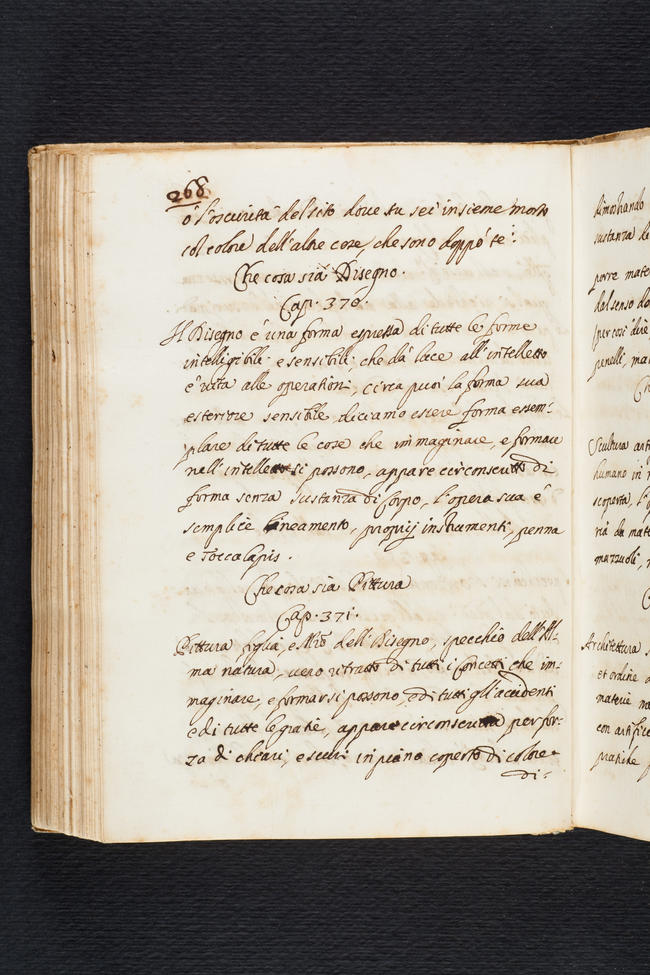 268
o l'oscurità del sito dove tu sei insieme morto
col colore dell'altre cose, che sono doppò te.
Che cosa sia Disegno.
Cap. 370.
Il Disegno è una forma espressa di tutte le forme
intelligibili e sensibili che dà luce all'intelletto
è vita alle operation, circa puoi la forma sua
esteriore sensibile diciamo essere forma essem-
plare di tutte le cose che immaginare, e formare
nell'intelletto si possono, appare circonscritto di
forma senza sustanza di Corpo, l'opera sua è
semplice lineamento, proprij instrumenti, penna
e Toccalapis.
Che cosa sia Pittura
Cap. 371.
Pittura figlia, e dell'Disegno, specchio dell'Al-
ma natura, vero ritratto di tutti i Concetti che im-
maginare, e formarsi possono, e di tutti gl'accidenti
e di tutte le gratie, appare circonscritta per for-
za di chiari, e scuri in piano coperto di colore
di-
dimostrando
sustanza
porre mate
dal senso da
(per così dire
penelli, ma
Scultura
humano in
scoperta, l'o
ria da mate
mazzuoli,
Architettura
et ordine
materie
con artifice
pratiche